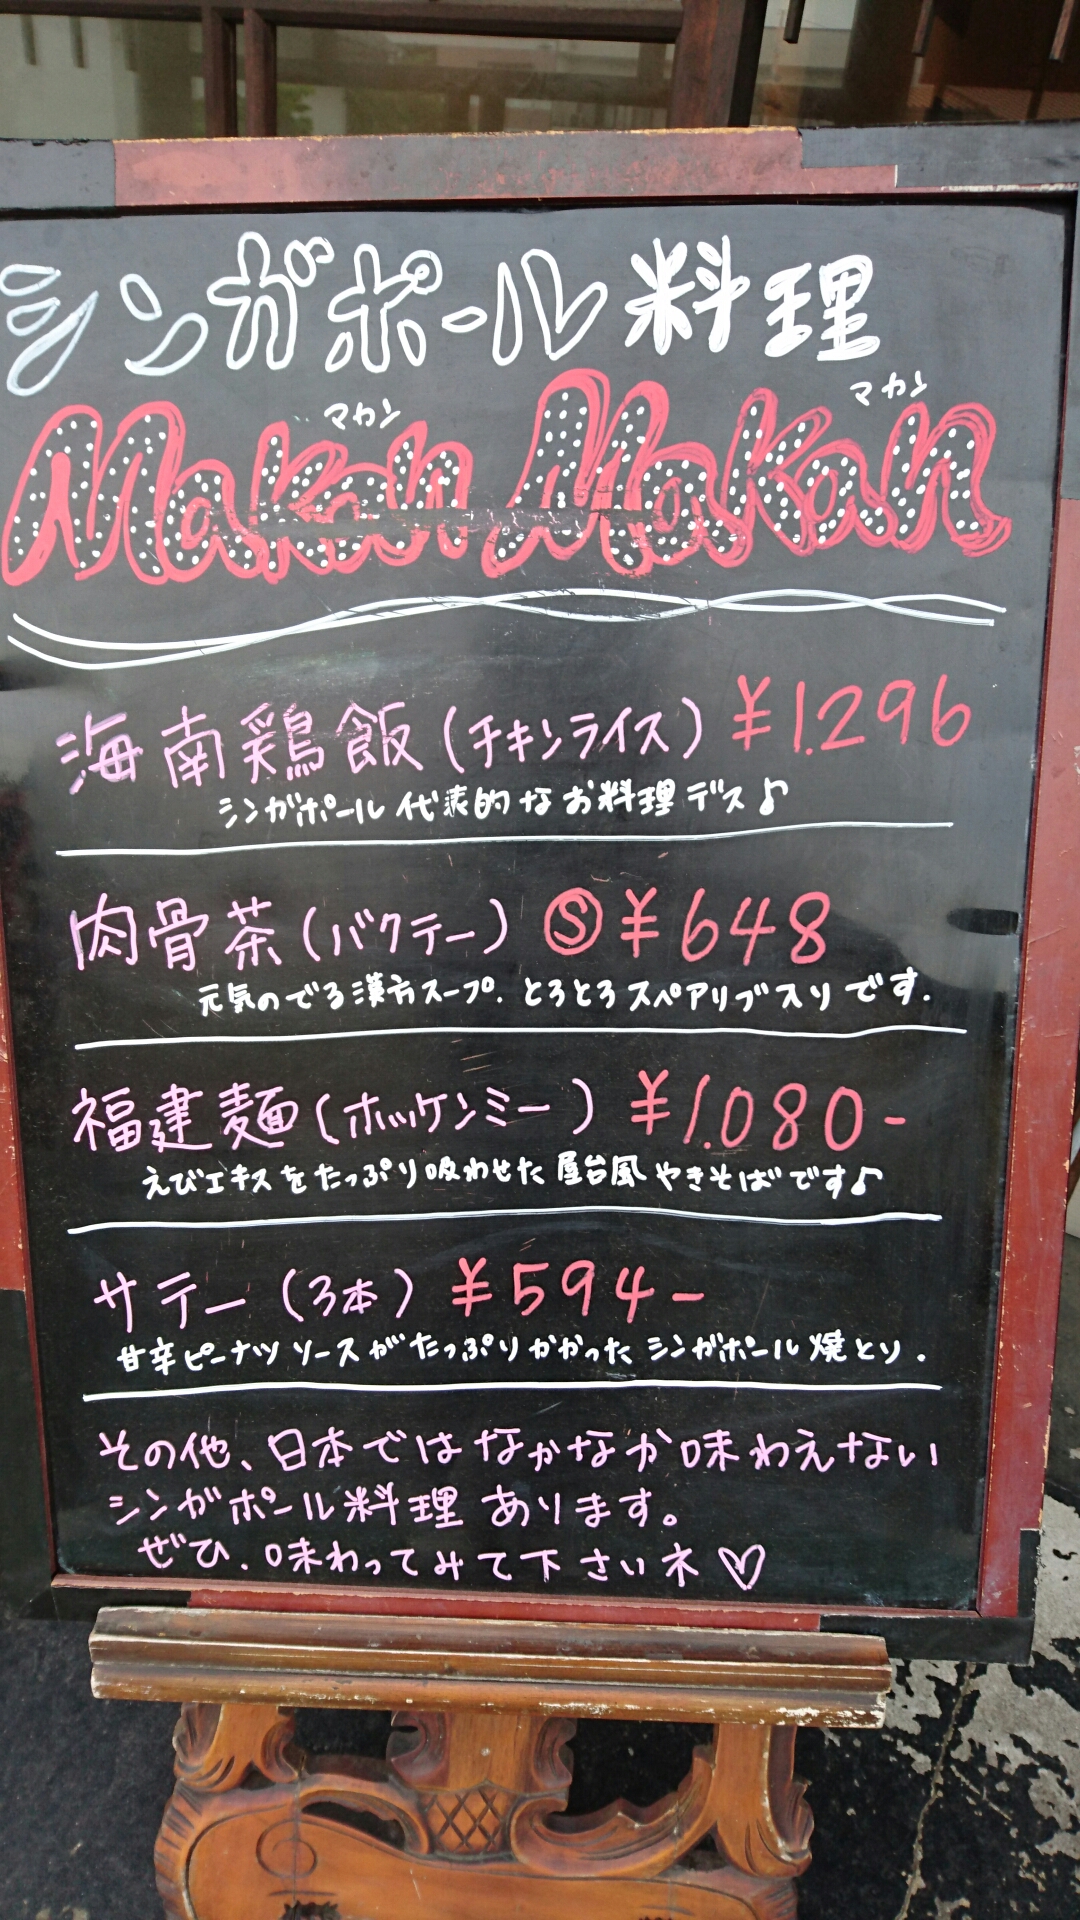 シンガポール料理
マカン マカン
Makan Makan
海南鶏飯(チキンライス) ¥1.296
シンガポール代表的なお料理デス♪
肉骨茶(バクテー) Ⓢ¥648
元気のでる漢方スープ. とろとろスペアリブ入りです.
福建麺(ホッケンミー) ¥1.080-
えびエキスをたっぷり吸わせた屋台風やきそばです♪
サテー(3本) ¥594-
甘辛ピーナツソースがたっぷりかかったシンガポール焼とり.
その他、日本ではなかなか味わえない
シンガポール料理あります。
ぜひ.味わってみて下さいネ♡